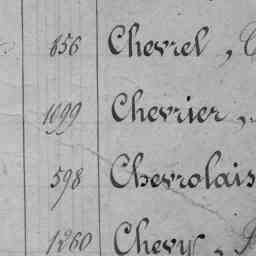 856 Chevrel,
1099 Chevrier,
598 Chevrolais
1260 Chevy,